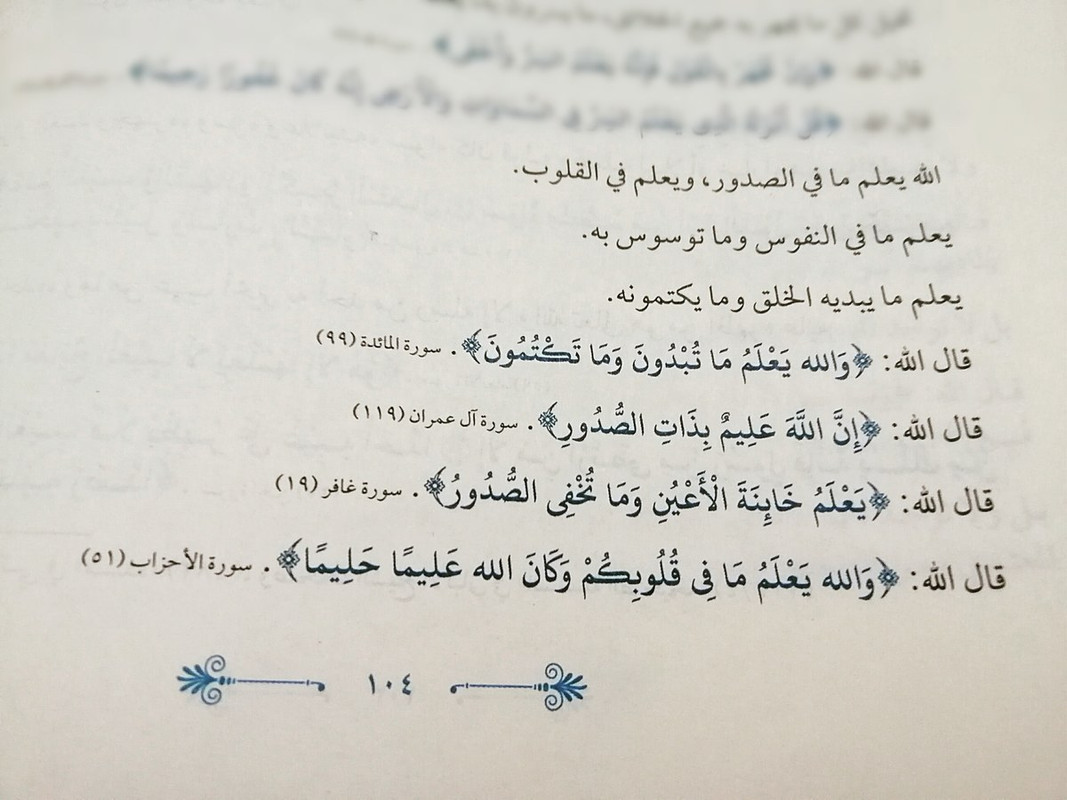 قال الله:
قال الله: ﴿قُلْ أَنزَلَهُ الَّذِي يَعْلَمُ السِّرَّ فِي السَّمَاوَاتِ وَالْأَرْضِ إِنَّهُ كَانَ غَفُورًا رَحِيمًا﴾
الله يعلم ما في الصدور، ويعلم في القلوب.
يعلم ما في النفوس وما توسوس به.
يعلم ما يبديه الخلق وما يكتمونه.
قال الله: ﴿وَالله يَعْلَمُ مَا تُبْدُونَ وَمَا تَكْتُمُونَ﴾. سورة المائدة (٩٩)
قال الله: ﴿إِنَّ اللَّهَ عَلِيمٌ بِذَاتِ الصُّدُورِ﴾. سورة آل عمران (١١٩)
قال الله: ﴿يَعْلَمُ خَايِنَةَ الْأَعْيُنِ وَمَا تُخْفِى الصُّدُورُ﴾. سورة غافر (١٩)
قال الله: ﴿وَالله يَعْلَمُ مَا فِى قُلُوبِكُمْ وَكَانَ الله عَلِيمًا حَلِيمًا﴾. سورة الأحزاب (٥١)
١٠٤